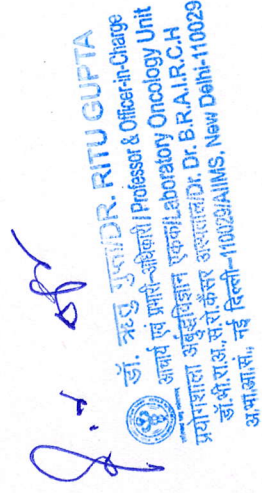 डॉ. ऋतु गुप्ता/DR. RITU GUPTA
आचार्य एवं प्रभारी-अधिकारी / Professor & Officer-in-Charge
प्रयोगशाला अर्बुदविज्ञान एकक/Laboratory Oncology Unit
डॉ.भी.रा.अ.,सं.रो.कैंसर अस्पताल/Dr. Dr. B.R.A.I.R.C.H
अ.भा.आ.सं., नई दिल्ली-110029/AIIMS, New Delhi-110029